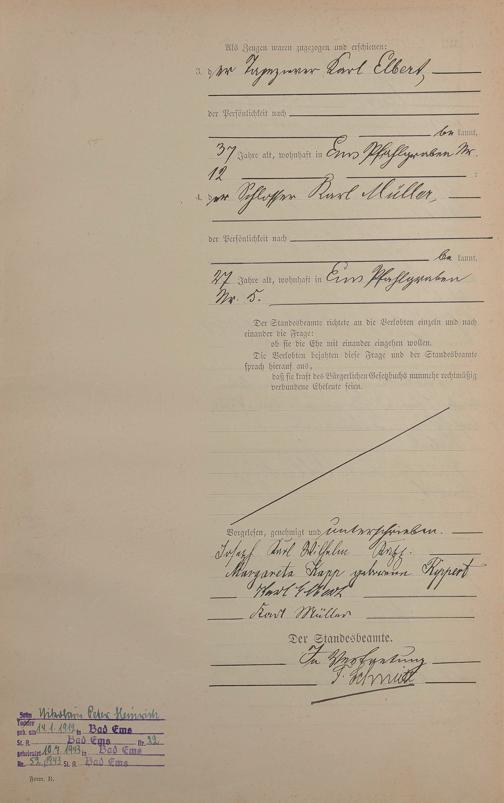 Als Zeugen waren zugezogen und erschienen:
3. der Tapezierer Karl Elbert,
der Persönlichkeit nach
be kannt,
37 Jahre alt, wohnhaft in Ems Pfahlgraben Nr.
12 ;
4. der Schlosser Karl Müller,
der Persönlichkeit nach
be kannt,
27 Jahre alt, wohnhaft in Ems Pfahlgraben
Nr. 5.
Der Standesbeamte richtete an die Verlobten einzeln und nach
einander die Frage:
ob sie die Ehe mit einander eingehen wollen.
Die Verlobten bejahten diese Frage und der Standesbeamte
sprach hierauf aus,
daß sie kraft des Bürgerlichen Gesetzbuchs nunmehr rechtmäßig
verbundene Eheleute seien.
Vorgelesen, genehmigt und unterschrieben.
Joseph Karl Wilhelm
Margareta Kapp geborene Ruppert
Karl Elbert
Karl Müller
Der Standesbeamte.
In Vertretung
Schmitt
Sohn Nikolaus Peter Heinrich
Tochter
geb. am 14.1.1919 in Bad Ems
St. A. Bad Ems Nr. 22
geheiratet 10.7.1943 in Bad Ems
Nr. 52/1943 St. A. Bad Ems
Form. B.